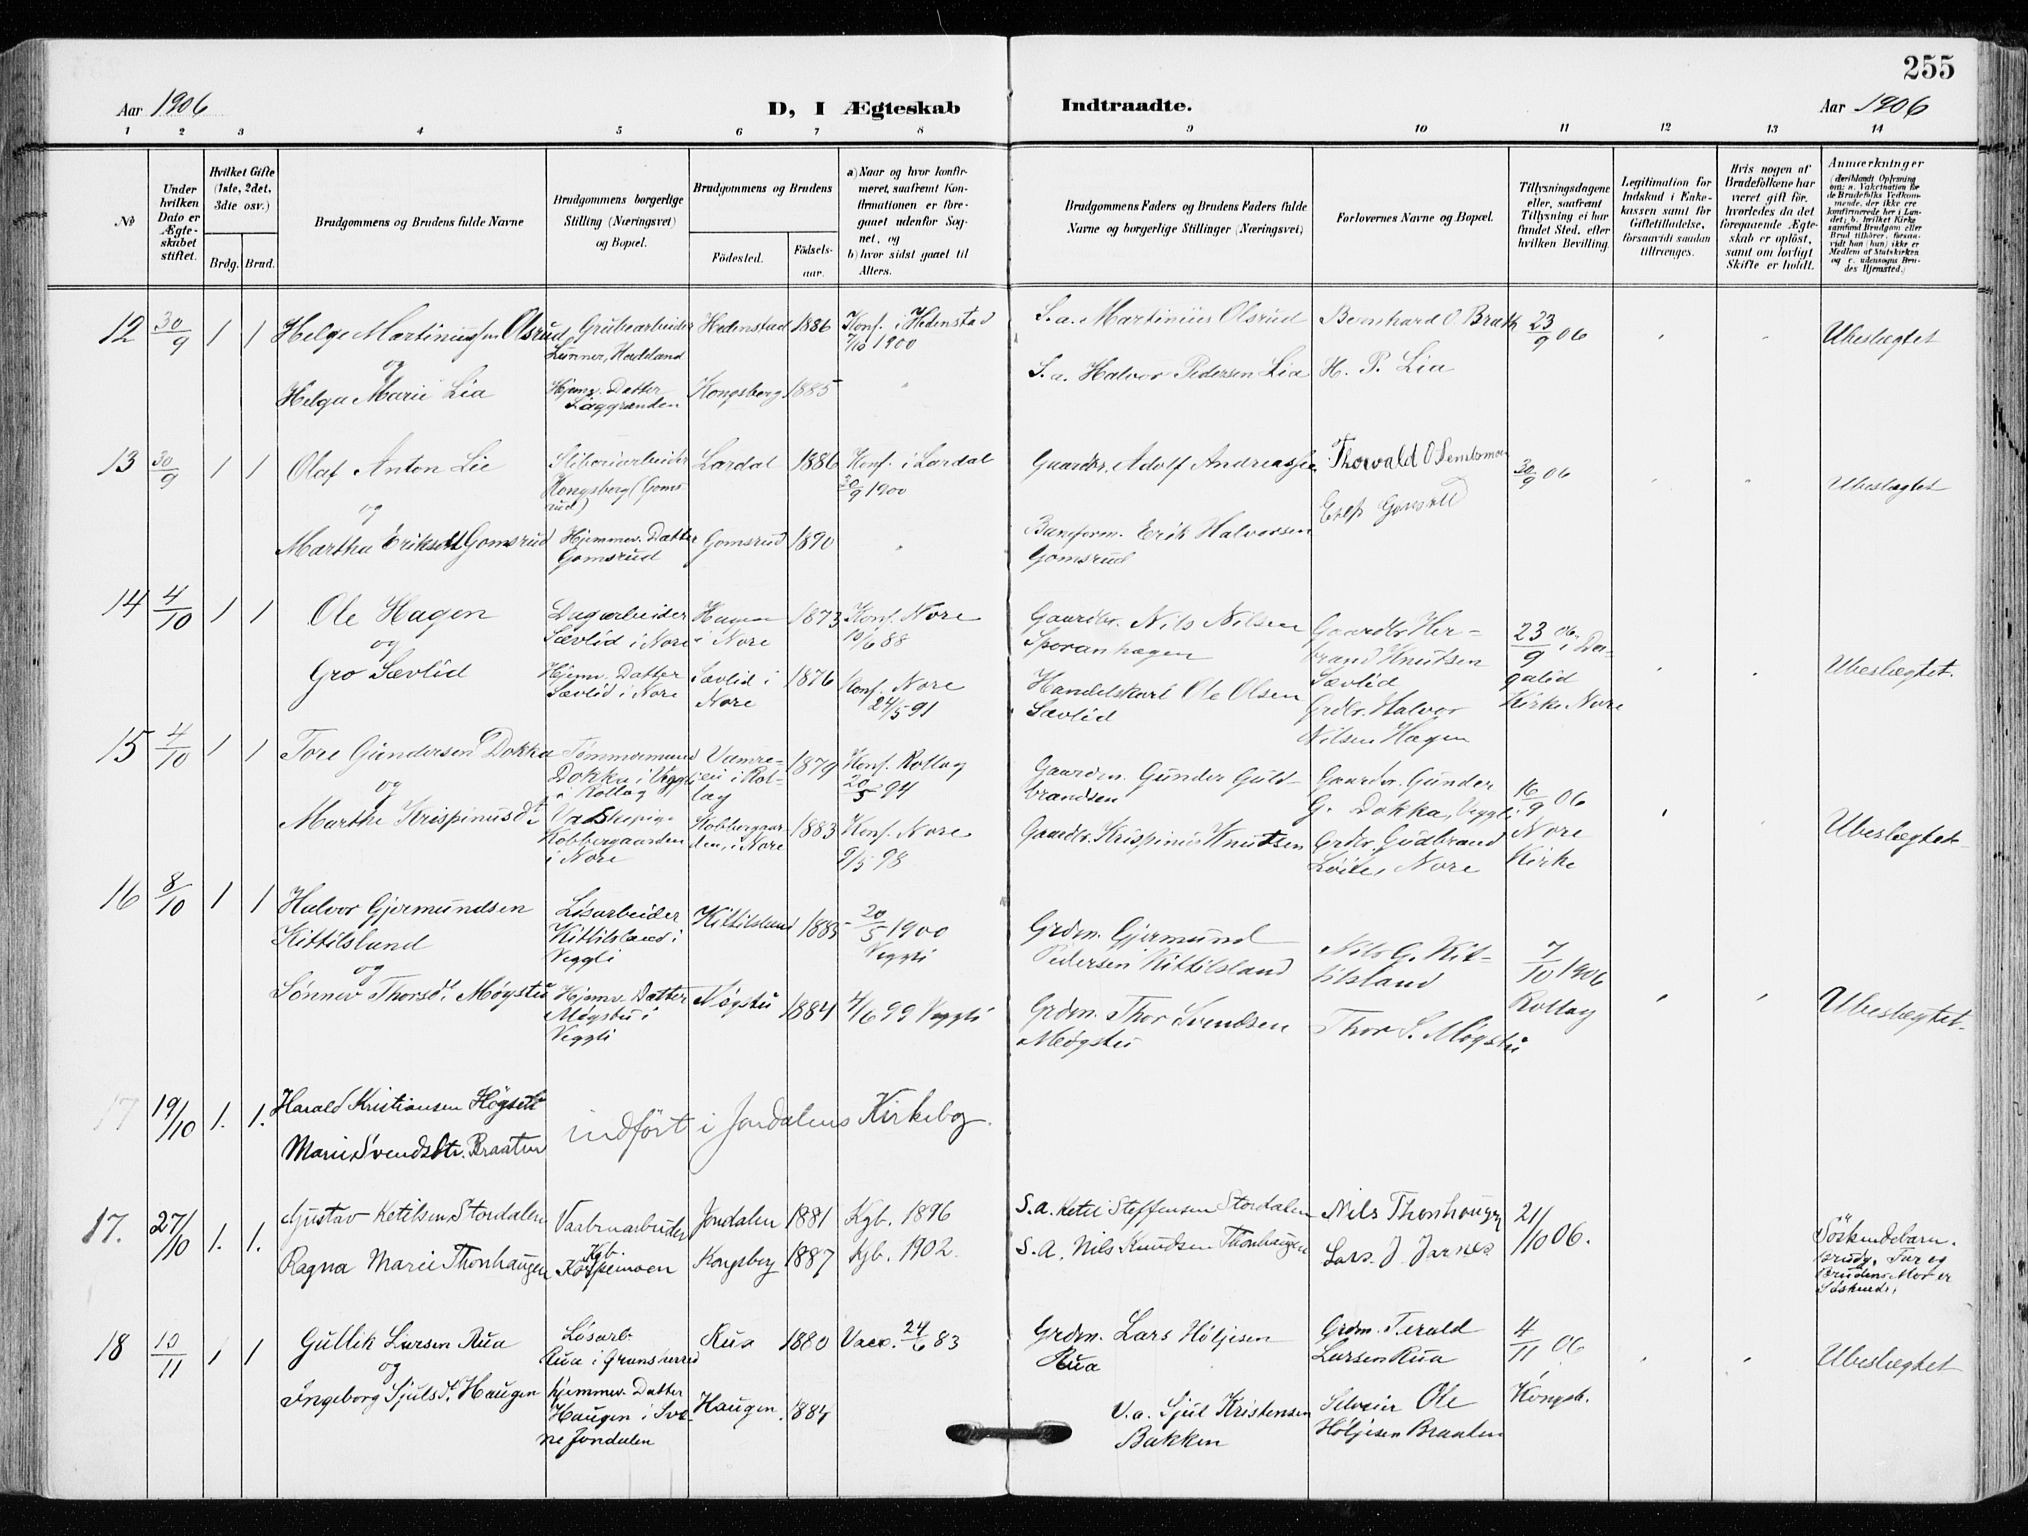 255
Aar 1906
D, I Ægteskab
Indtraadte.
Aar 1906
1 2 3 4 5 6 7 8 9 10 11 12 13 14
No
Under hvilken Dato er Ægteskabet stiftet.
Hvilket Gifte (1ste, 2det, 3die osv.)
Brdg. Brud.
Brudgommens og Brudens fulde Navne
Brudgommens borgerlige Stilling (Næringsvei) og Bopæl.
Brudgommens og Brudens
Fødested.
Fødselsaar.
a) Naar og hvor konfirmeret, saafremt Konfirmationen er foregaaet udenfor Sognet, og
b) hvor sidst gaaet til Alters.
Brudgommens Faders og Brudens Faders fulde Navne og borgerlige Stillinger (Næringsvei)
Forlovernes Navne og Bopæl.
Tillysningsdagene eller, saafremt Tillysning ei har fundet Sted, efter hvilken Bevilling.
Legitimation for Indskud i Enkekassen samt for Giftetilladelse, forsaavidt saadan tiltrænges.
Hvis nogen af Brudefolkene har været gift før, hvorledes da det foregaaende Ægteskab er opløst, samt om lovligt Skifte er holdt.
Anmærkninger
12 30/9 1 1 Helge Martinussen Olsrud
Grubearbeider
Hedenstad 1886 Konf. i Hedenstad
1900
S.a. Martinius Olsrud
Bernhard O. Bratk
23/9 06
Ubeslægtet
og
Helga Marie Lia
Hjemv. Datter
Kongsberg 1885
S.a. Halvor Pedersen Lia
H. P. Lia
13 30/9 1 1 Olaf Anton Lie
Kongsberg (Gomsrud)
Lardal 1886 Konf. i Lardal
30/9 1900
30/9 06
Ubeslægtet
og
Martha Eriksdtt Gomsrud
Hjemmev. Datter
Gomsrud
Gomsrud 1890
Erik Halvorsen
Gomsrud
14 4/10 1 1 Ole Hagen
Dagarbeider
Sævlid i Nore
Hagen
i Nore
1873 Konf. Nore
10/6 88
Gaardbr. Nils Nilsen
Sporanhagen
Gaardbr Herbrand Knutsen
Sævlid
23/9 06 i Dagalid
Kirke Nore
Ubeslægtet.
og
Gro Sævlid
Hjemv. Datter
Sævlid i Nore
Sævlid i
Nore
1876 Konf. Nore
24/5 91
Handelskarl Ole Olsen
Sævlid
Grdbr. Halvor
Nilsen Hagen
15 4/10 1 1 Tore Gundersen Dokka
Tømmermand
Dokka i Veggli
i Rollag
1879 Konf. Rollag
20/5 94
Gaardm. Gunder Guldbrandsen
Gaardbr. Gunder
G. Dokka, Veggli
16/9 06
Nore
Kirke
Ubeslægtet
og
Marthe Krispinusdt.
Kobbergaarden
i Nore
Kobbergaarden, i Nore
1883 Konf. Nore
9/5 98
Gaardbr. Krispinus Knutsen
Grdbr. Gudbrand
Nore
16 8/10 1 1 Halvor Gjermundsen
Kittilsland
Løsarbeider
Kittilsland i
Veggli
Kittilsland 1885 20/5 1900
Veggli
Grdm. Gjermund
Pedersen Kittilsland
Nils G. Kittilsland
7/10 1906
Rollag
Ubeslægtet.
og
Sønnev Thorsdt. Møgstu
Hjemv. Datter
Møgstu i
Veggli
Møgstu 1884 4/6 99 Veggli
Grdm. Thor Svendsen
Møgstu
Thor S. Møgstu
17 19/10 1. 1. Harald Kristiansen Høgset
Marie Svendsdtr. Braaten
indført i Jondalens Kirkebog.
17. 27/10 1. 1. Gustav Ketilsen Stordalen
Vaabenarbeider
Jondalen 1881 Kgb. 1896
S.a. Ketil Steffensen Stordalen
Nils Thonhaugen
21/10 06.
Söskendebarn.
Brudg. Far og
Brudens Mor er
Söskende.
Ragna Marie Thonhaugen
Kgb.
Kongsberg 1887 Kgb. 1902.
S.A. Nils Knudsen Thonhaugen
Lars J. Jarnes
18 10/11 1 1 Gullik Larsen Rua
Løsarb.
Rua i Gransherred
Rua 1880 Vacc. 24/6 83
Grdm. Lars Høljesen
Rua
Grdm. Terald
Larsen Rua
4/11 06
Kongsb.
Ubeslægtet
og
Ingeborg Sjulsdt. Haugen
Hjemmev. Datter
Haugen i Svene Jondalen
Haugen. 1884
Sjul Kristensen
Bakken
Ole
Høljesen Braaten